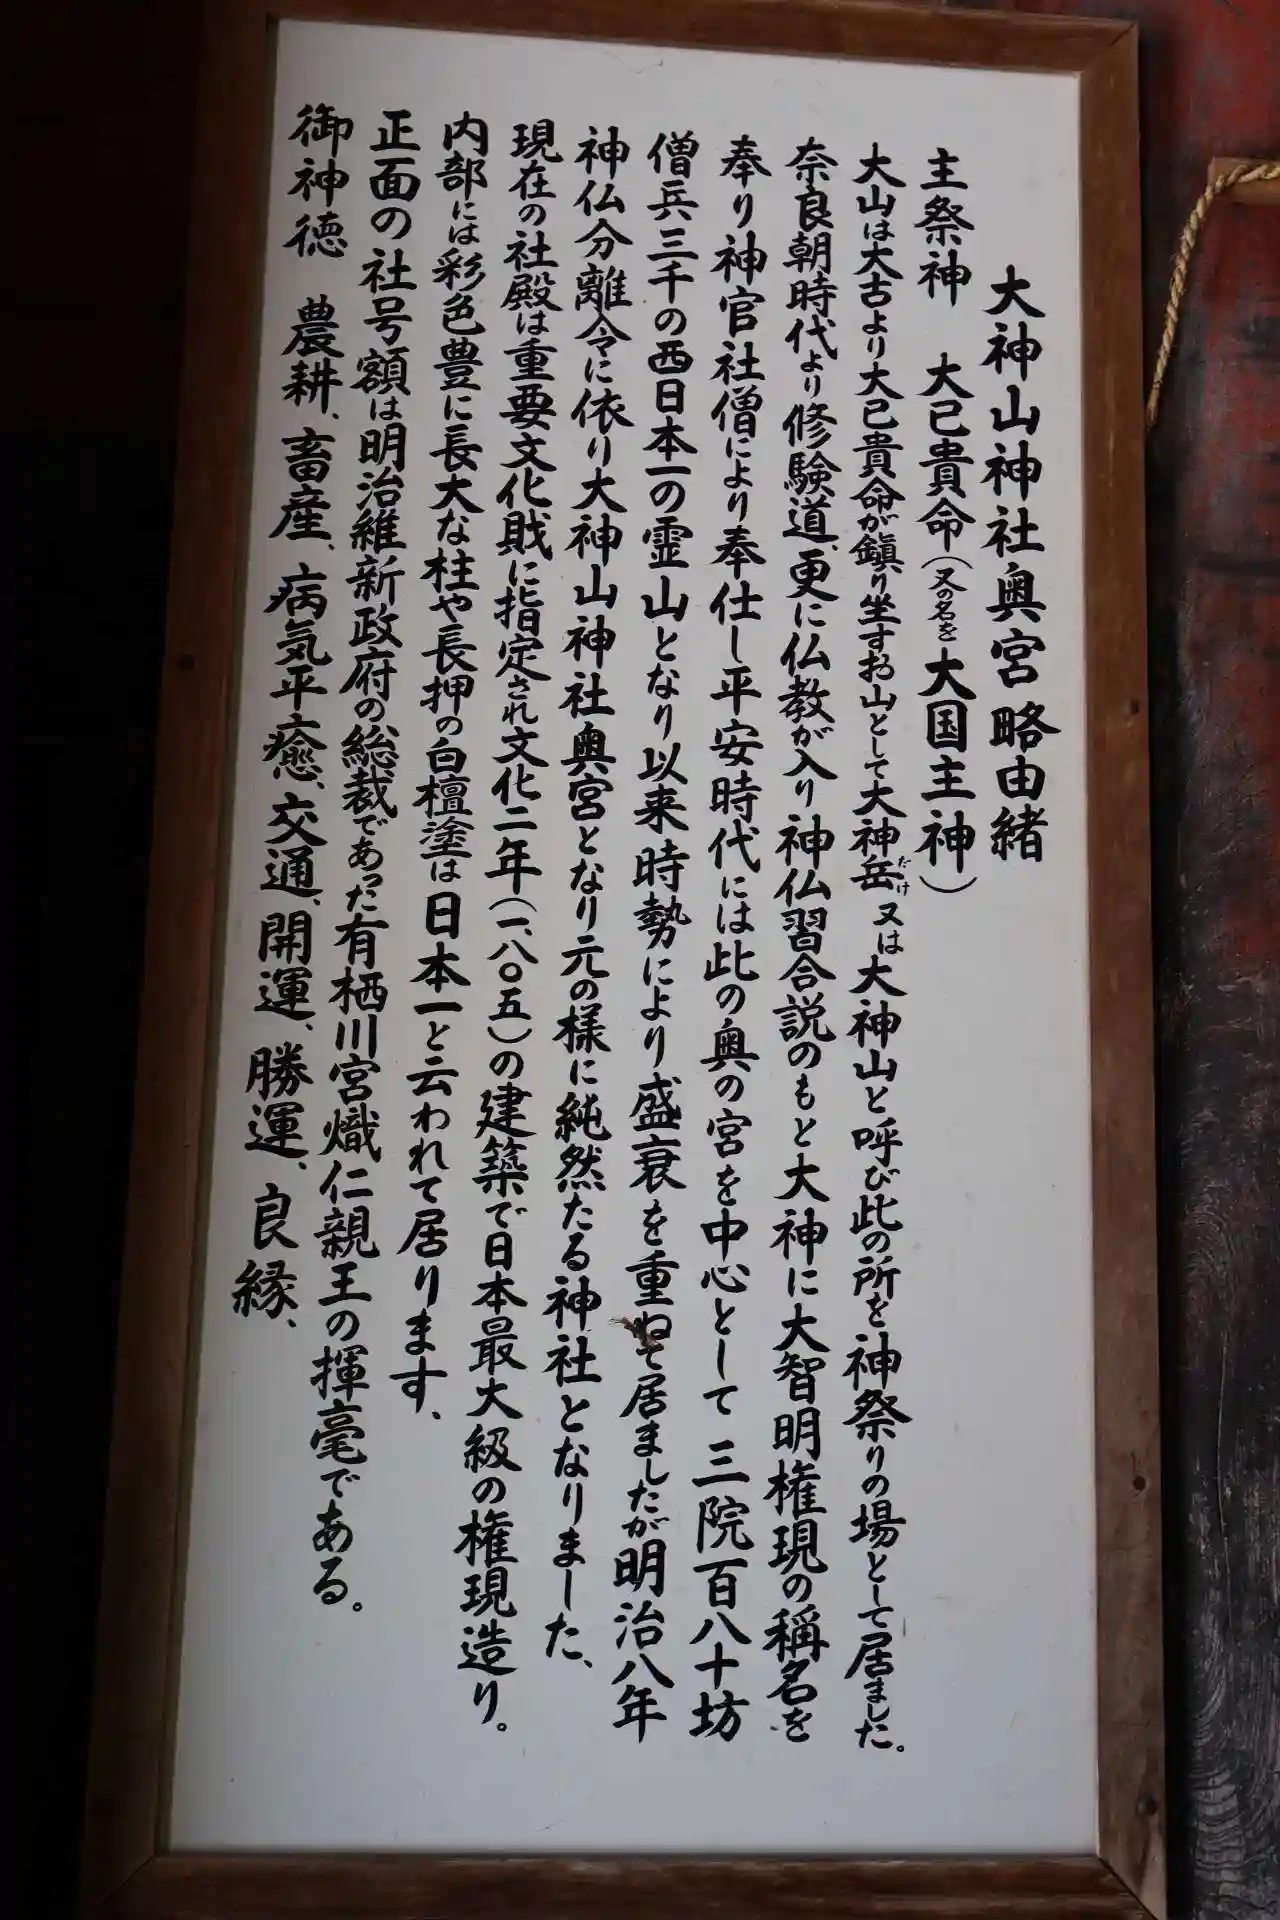 大神山神社奥宮略由緒
主祭神　大已貴命（又の名を大国主神）
大山は大古より大已貴命が鎭り坐すお山として大神岳又は大神山と呼び此の所を神祭りの場として居ました。
だけ
奈良朝時代より修験道、更に仏教が入り神仏習合説のもと大神に大智明権現の稱名を
奉り神官社僧により奉仕し平安時代には此の奥の宮を中心として三院百八十坊
僧兵三千の西日本一の霊山となり以来時勢により盛衰を重ねて居ましたが明治八年
神仏分離令に依り大神山神社奥宮となり元の様に純然たる神社となりました、
現在の社殿は重要文化財に指定され文化二年（一、八〇五）の建築で日本最大級の権現造り。
内部には彩色豊に長大な柱や長押の白檀塗は日本一と云われて居ります、
正面の社号額は明治維新政府の総裁であった有栖川宮熾仁親王の揮毫である。
御神徳　農耕、畜産、病気平癒、交通、開運、勝運、良縁、